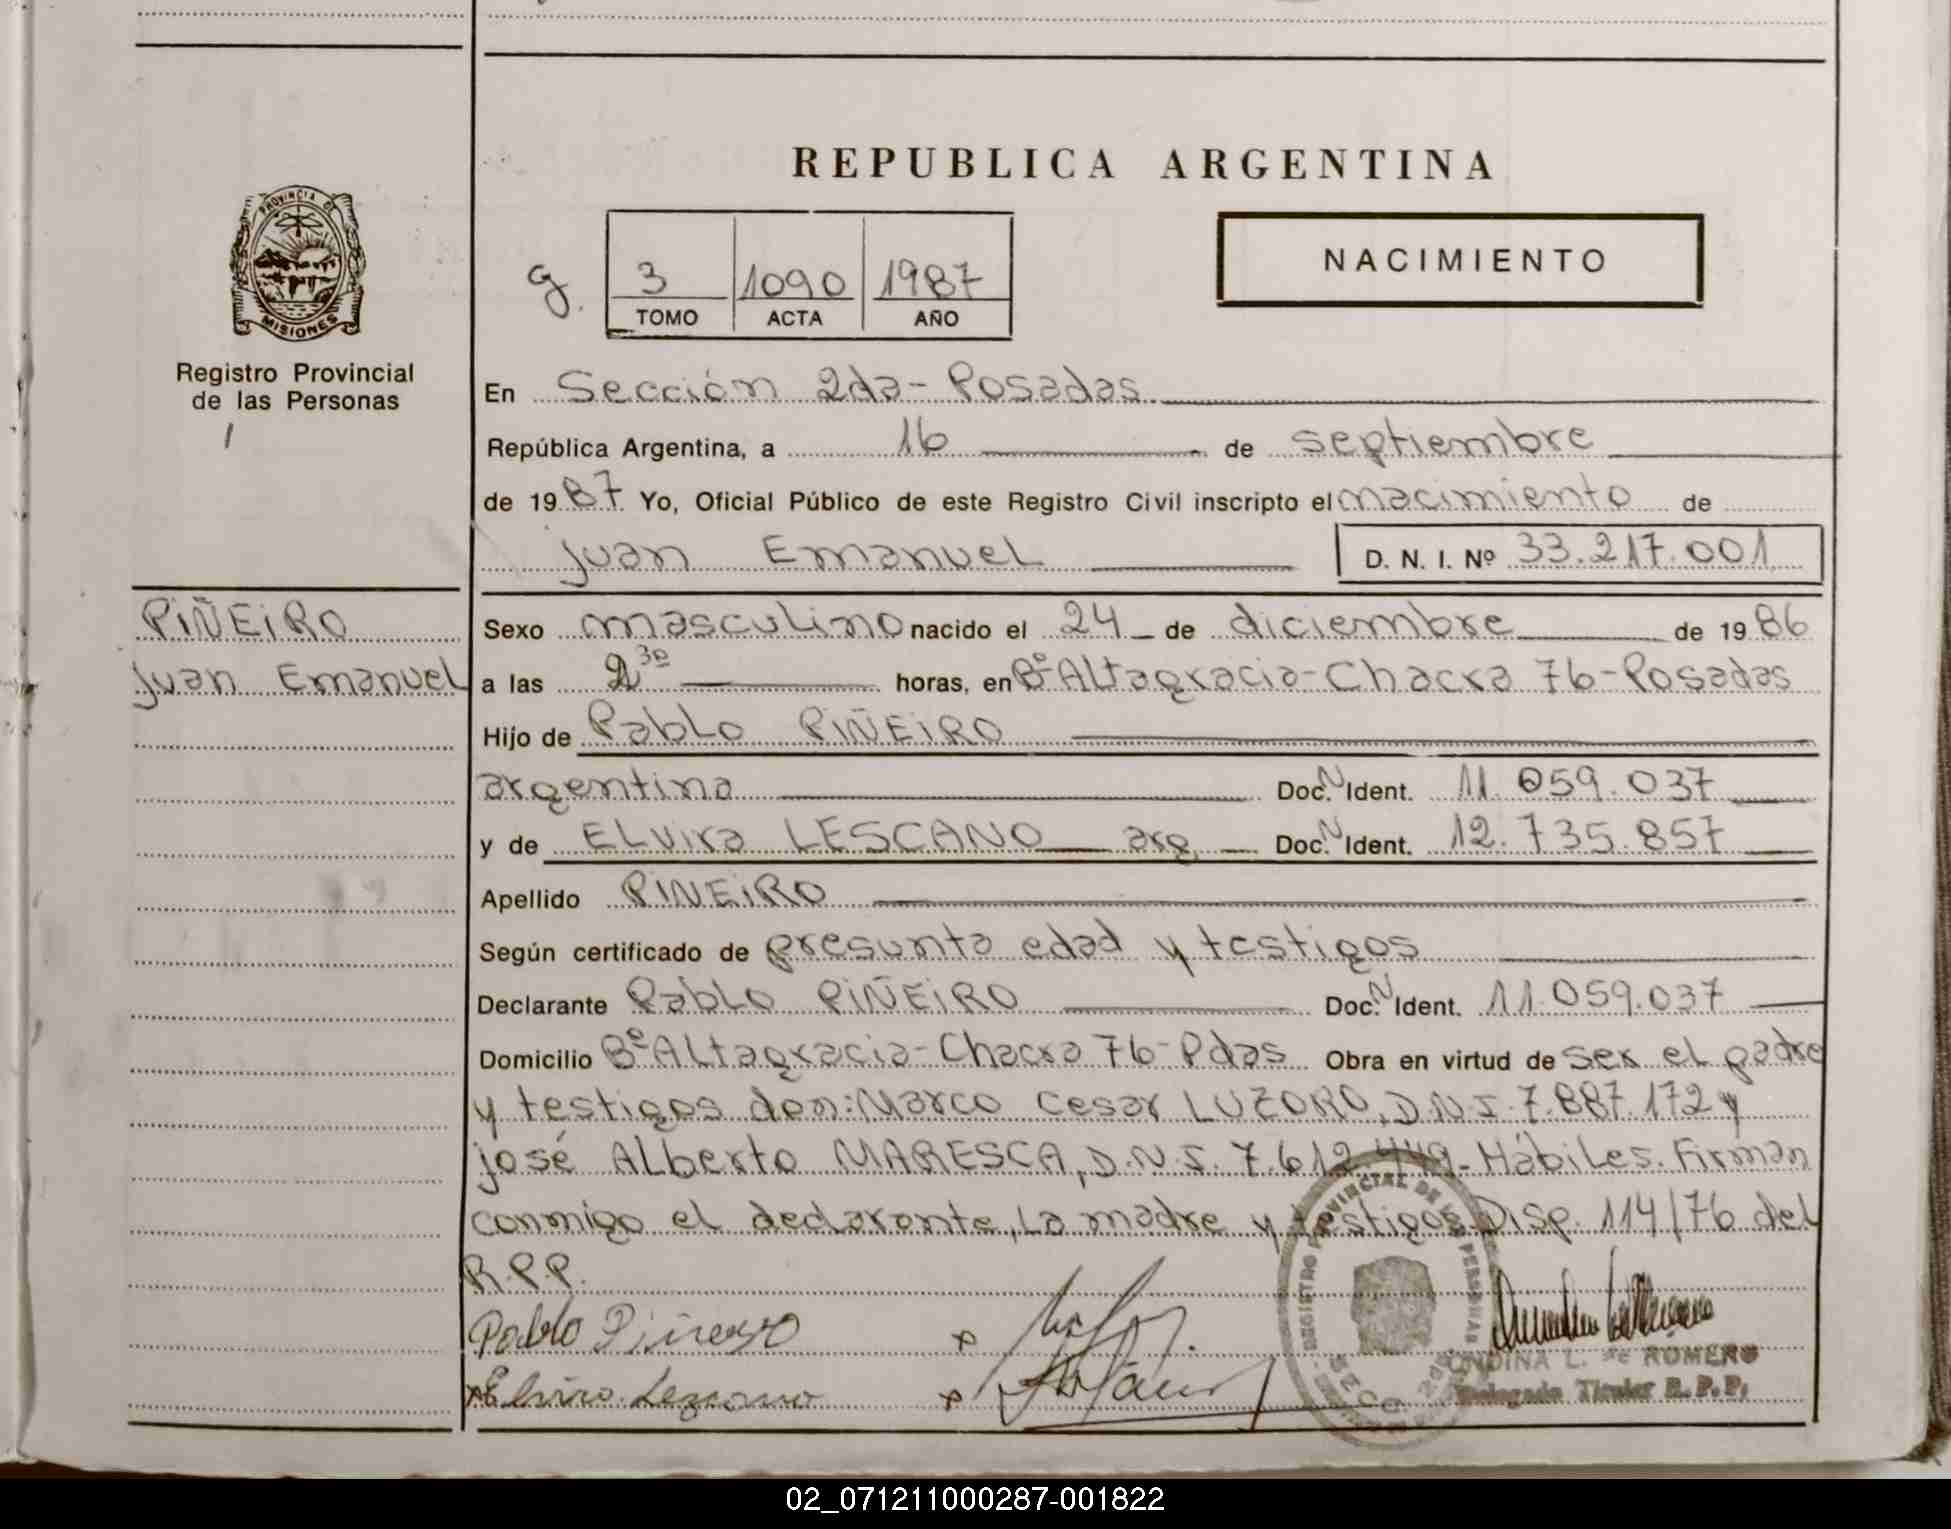 REPUBLICA ARGENTINA
PROVINCIA DE
MISIONES
Registro Provincial
de las Personas
g. 3 1090 1987
TOMO ACTA AÑO
NACIMIENTO
En Sección 2da - Posadas.
República Argentina, a 16 de septiembre
de 1987 Yo, Oficial Público de este Registro Civil inscripto el nacimiento de
Juan Emanuel D. N. I. Nº 33.217.001
PIÑEIRO
Juan Emanuel
Sexo masculino nacido el 24 de diciembre de 1986
a las 2³⁰ horas, en Bº Altagracia - Chacra 76 - Posadas
Hijo de Pablo PIÑEIRO
argentina Doc. N Ident. 11.059.037
y de ELvira LESCANO arg. Doc. N Ident. 12.735.857
Apellido PIÑEIRO
Según certificado de presunta edad y testigos
Declarante Pablo PIÑEIRO Doc. N Ident. 11.059.037
Domicilio Bº Altagracia - Chacra 76 - Pdas Obra en virtud de ser el padre
y testigos don: Marco Cesar LUZORO, D.N.I. 7.887.172 y
José Alberto MARESCA, D.N.I. 7.612.449 - Hábiles. Firman
conmigo el declarante, La madre y testigos. Disp. 114/76 del
R.P.P.
Pablo Piñeiro
Elvira Lezcano
REGISTRO PROVINCIAL DE LAS PERSONAS
SECC. 2da
ONDINA L. de ROMERO
Delegada Titular R.P.P.
02_071211000287-001822